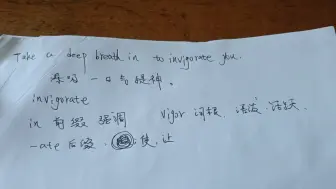 Take a deep breath in to invigorate you.
深吸一口气提神。
invigorate
in 前缀 强调 vigor 词根、活泼、活跃
-ate 后缀、使、让